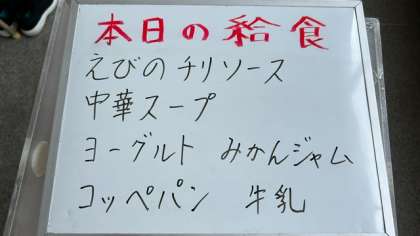 本日の給食
えびのチリソース
中華スープ
ヨーグルト みかんジャム
コッペパン 牛乳